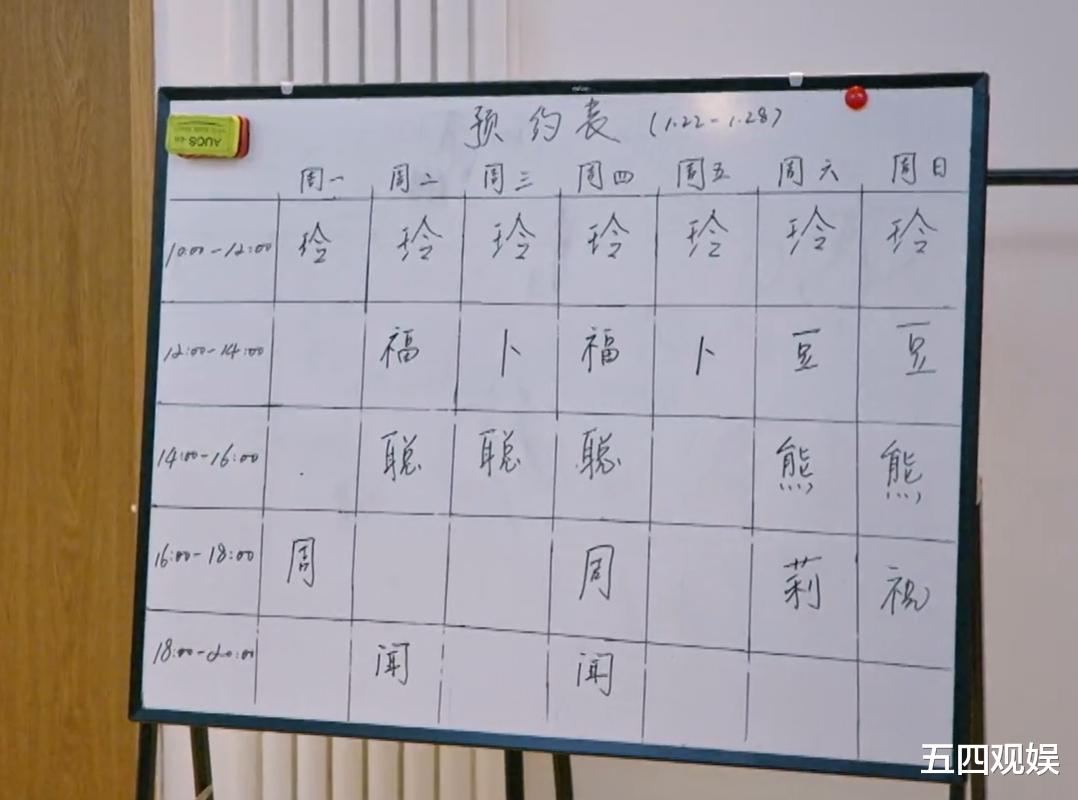 预约表 (1.22-1.28)
周一 周二 周三 周四 周五 周六 周日
10:00-12:00 玲 玲 玲 玲 玲 玲 玲
12:00-14:00 福 卜 福 卜 豆 豆
14:00-16:00 聪 聪 聪 熊 熊
16:00-18:00 周 周 莉 祝
18:00-20:00 闻 闻
AUCS
五四观娱